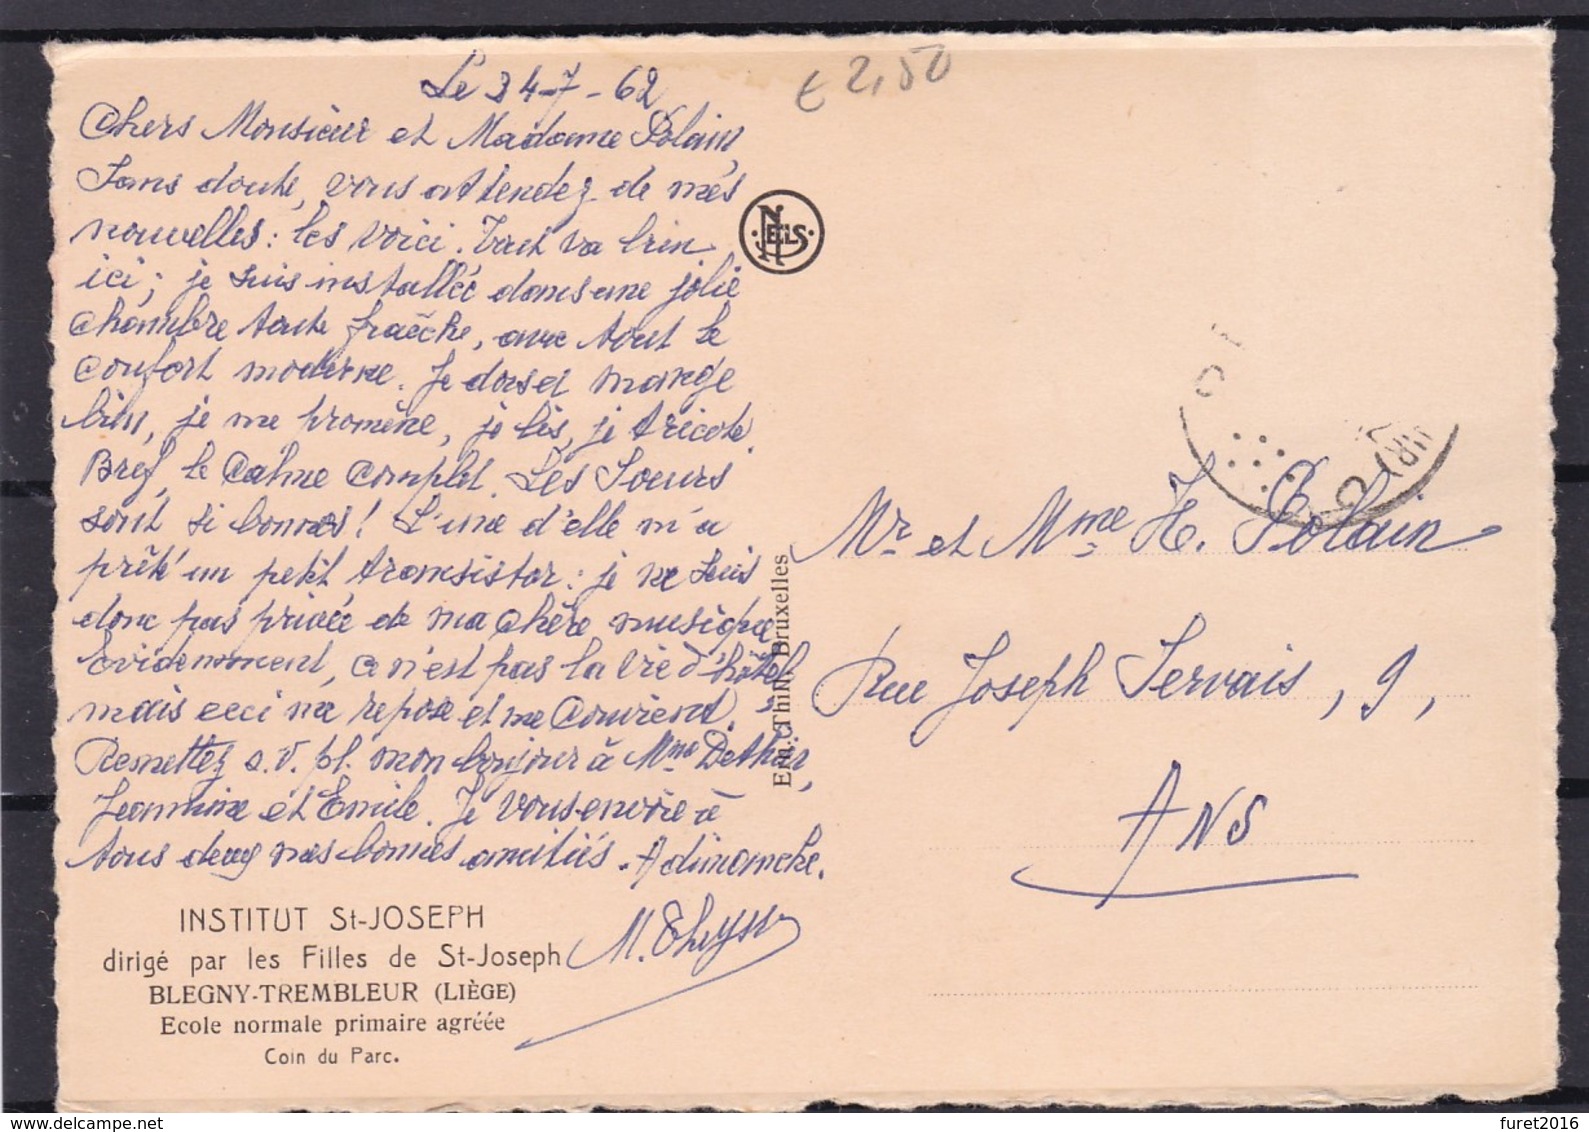 Le 24-7-62
€ 2,50
Chers Monsieur et Madame Polain,
Sans doute, vous attendez de mes
nouvelles : les voici. Tout va bien
ici ; je suis installée dans une jolie
chambre toute fraîche, avec tout le
confort moderne. Je dors et mange
bien, je me promène, je lis, je tricote.
Bref, le calme complet. Les Soeurs
sont si bonnes ! L'une d'elle m'a
prêté un petit transistor : je ne suis
donc pas privée de ma chère musique
Evidemment, ce n'est pas la vie d'hôtel
mais ceci me repose et me convient.
Remettez s.v.pl. mon bonjour à Mme Dethier,
Jeannine et Emile. Je vous envoie à
tous deux mes bonnes amitiés. A dimanche.
M. Theyss
INSTITUT St-JOSEPH
dirigé par les Filles de St-Joseph
BLEGNY-TREMBLEUR (LIÈGE)
Ecole normale primaire agréée
Coin du Parc.
NELS
Ern. Thill, Bruxelles
Mr et Mme H. Polain
Rue Joseph Servais, 9,
ANS
delcampe.net
furet2016